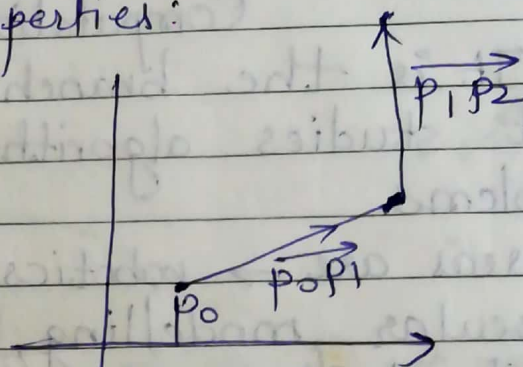 perties:
p₁p₂
p₀p₁
p₀